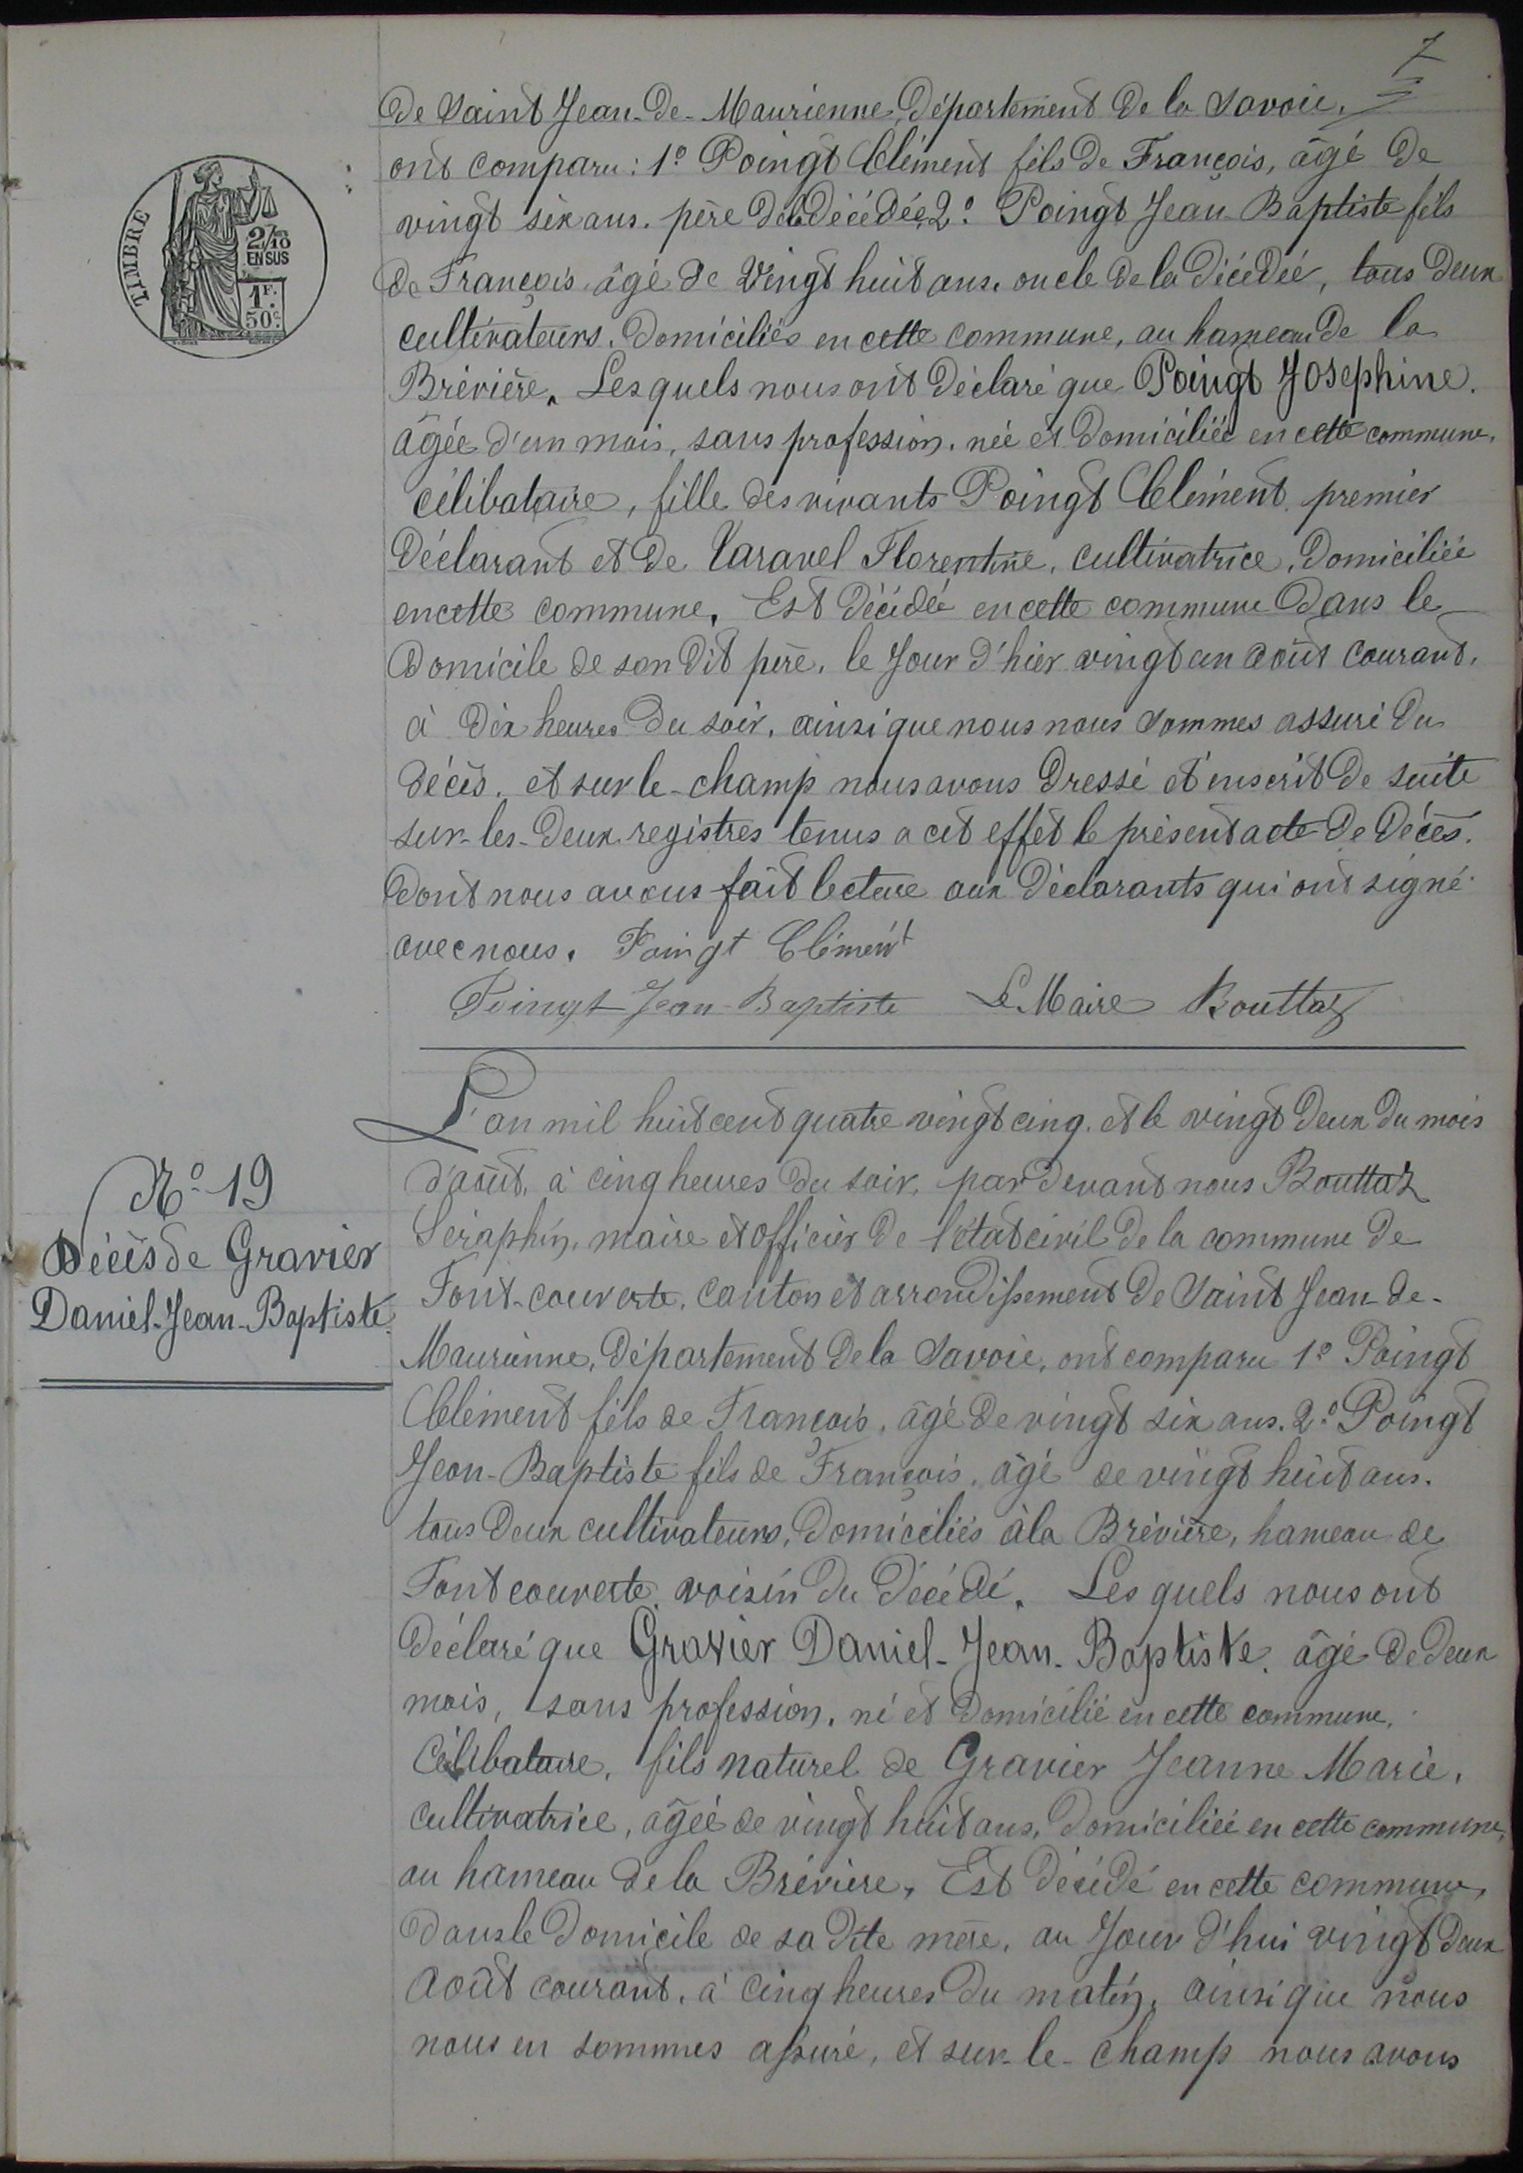 7
de Saint Jean-de-Maurienne, Département de la Savoie,
ont comparu : 1° Poingt Clément fils de François, âgé de
vingt six ans, père de la décédée, 2° Poingt Jean Baptiste fils
de François, âgé de vingt huit ans, oncle de la décédée, tous deux
cultivateurs, domiciliés en cette commune, au hameau de la
Brévière. Les quels nous ont déclaré que Poingt Josephine.
âgée d'un mois, sans profession, née et domiciliée en cette commune,
célibataire, fille des vivants Poingt Clément, premier
déclarant et de Taravel Florentine, cultivatrice, domiciliée
en cette commune. Est décédée en cette commune dans le
domicile de son dit père, le jour d'hier vingt un août courant,
à dix heures du soir, ainsi que nous nous sommes assuré du
décès, et sur le-champ nous avons dressé et inscrit de suite
sur-les-deux registres tenus a cet effet le présent acte de décès.
dont nous avons fait lecture aux déclarants qui ont signé
avec nous. Poingt Clément
Poingt Jean-Baptiste Le Maire Bouttaz
TIMBRE
2/10
EN SUS
1F.
50c.
N° 19
Décès de Gravier
Daniel-Jean-Baptiste.
L'an mil huit cent quatre vingt cinq, et le vingt deux du mois
d'août, à cinq heures du soir, par devant nous Bouttaz
Séraphin, maire et officier de l'état civil de la commune de
Font-couverte, canton et arrondissement de Saint Jean-de-
Maurienne, Département de la Savoie, ont comparu 1° Poingt
Clément fils de François, âgé de vingt six ans. 2° Poingt
Jean-Baptiste fils de François, âgé de vingt huit ans.
tous deux cultivateurs, domiciliés à la Brévière, hameau de
Font couverte, voisin du décédé. Les quels nous ont
déclaré que Gravier Daniel-Jean-Baptiste, âgé de deux
mois, sans profession, né et domicilié en cette commune,
célibataire, fils naturel de Gravier Jeanne Marie,
cultivatrice, âgée de vingt huit ans, domiciliée en cette commune,
au hameau de la Brévière. Est décédé en cette commune,
dans le domicile de sa dite mère, au jour d'hui vingt deux
août courant, à cinq heures du matin, ainsi que nous
nous en sommes assuré, et sur-le-champ nous avons